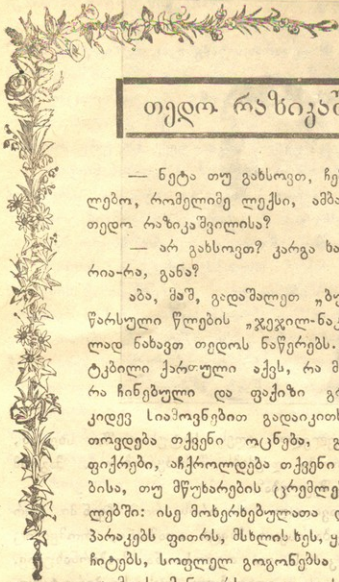 თედო რაზიკაშ
— ნეტა თუ გახსოვთ, ჩე
ლებო, რომელიმე ლექსი, ამბა
თედო რაზიკაშვილისა?
— არ გახსოვთ? კარგა ხა
რია-რა, განა?
აბა, მაშ, გადაშალეთ „ბუ
წარსული წლების „ჯეჯილ-ნაკ
ლად ნახავთ თედოს ნაწერებს.
ტკბილი ქართული აქვს, რა მ
რა ჩინებული და ფაქიზი გრ
კიდევ სიამოვნებით გადაიკითხ
თოვდება თქვენი ოცნება, გ
ფიქრები, აჩქროლდება თქვენი
ბისა, თუ მწუხარების ცრემლე
ლებში: ისე მოხერხებულათა დ
პარაკებს ფითრს, მსხლის ხეს, ყ
ჩიტებს, სოფლელ გოგონებსა